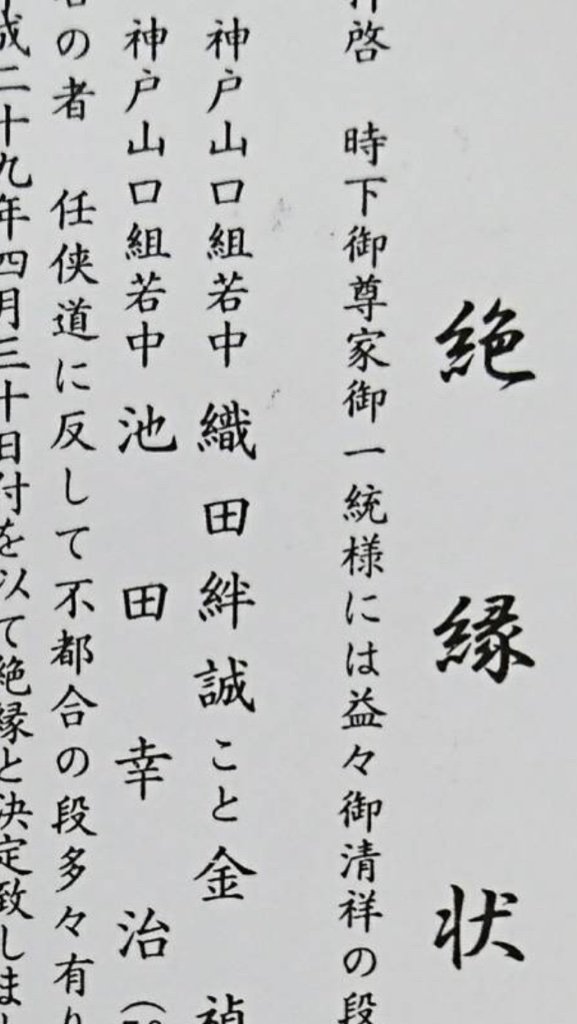 絶縁状
拝啓 時下御尊家御一統様には益々御清祥の段
神戸山口組若中 織田絆誠こと金 禎
神戸山口組若中 池田幸治(
の者 任侠道に反して不都合の段多々有り
成二十九年四月三十日付を以て絶縁と決定致しまし